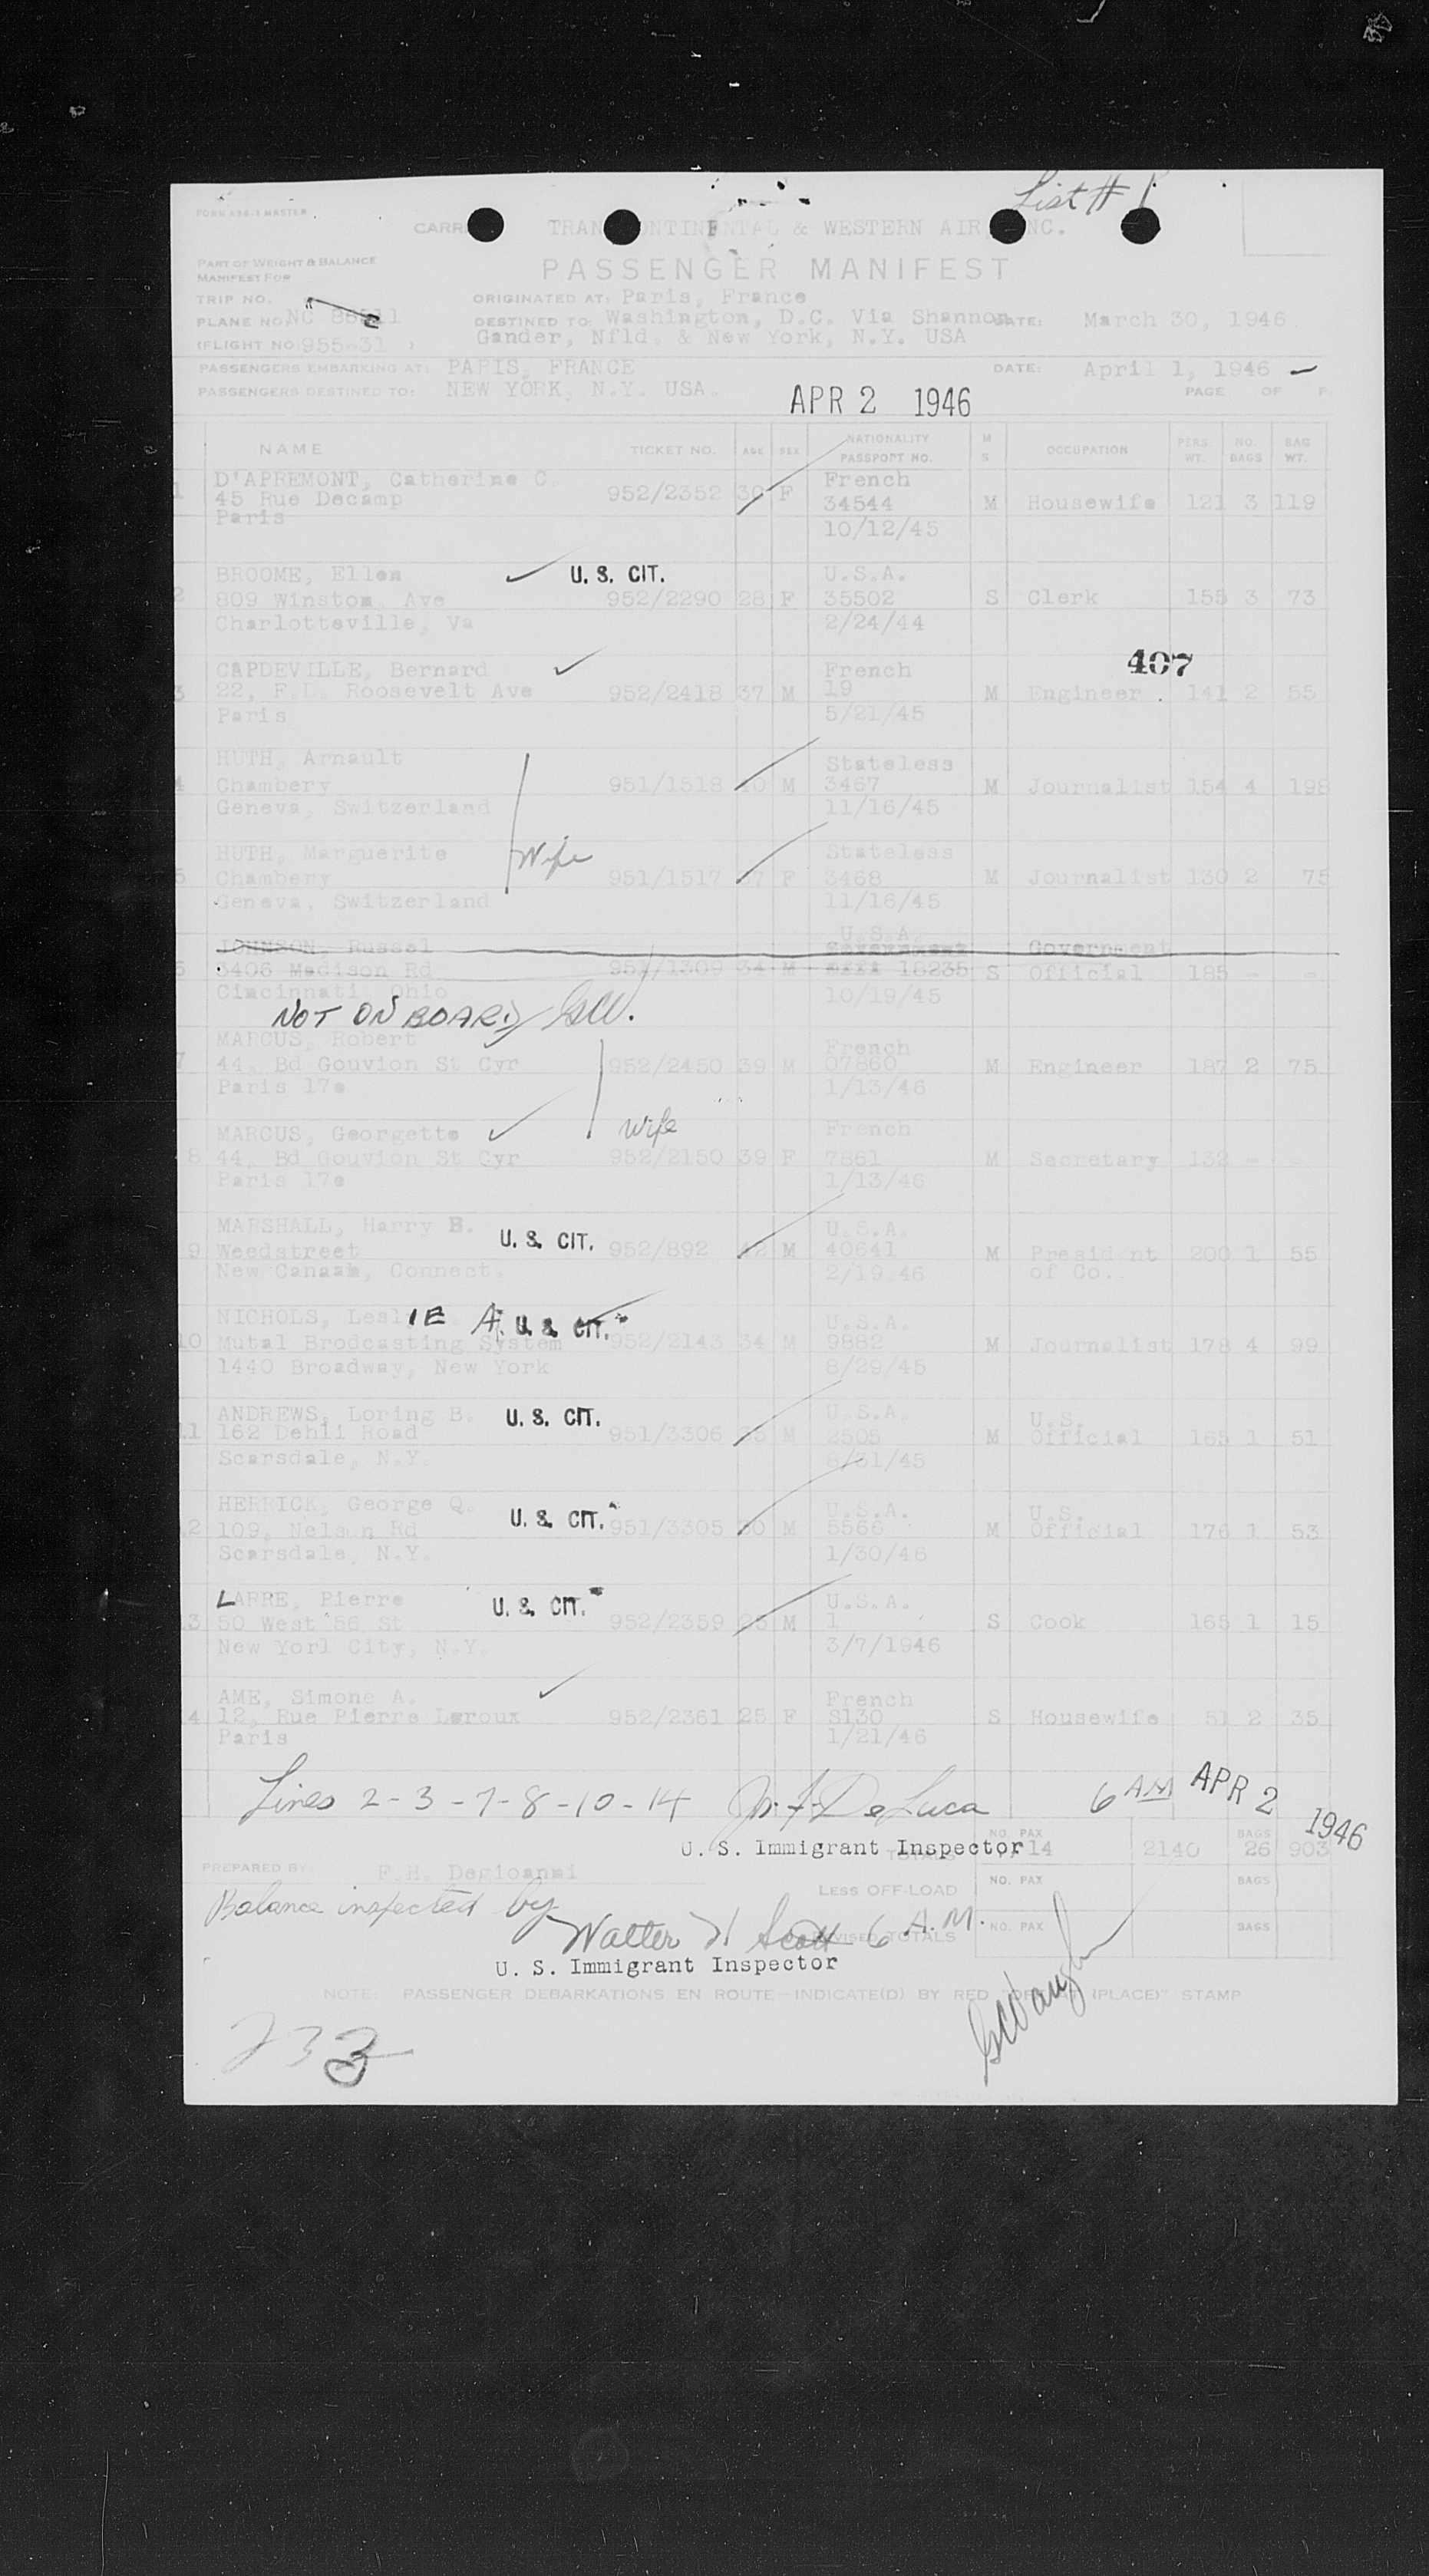 List # 1
FORM MASTER
CARR TRAN ONTINENTAL & WESTERN AIR, INC.
PART OF WEIGHT & BALANCE
MANIFEST FOR
PASSENGER MANIFEST
TRIP NO.
ORIGINATED AT: Paris, France
PLANE NO. NC
DESTINED TO Washington, D.C. Via Shannon DATE: March 30, 1946
(FLIGHT NO. 955-31 )
Gander, Nfld. & New York, N.Y. USA
PASSENGERS EMBARKING AT: PARIS, FRANCE DATE: April 1, 1946
PASSENGERS DESTINED TO: NEW YORK, N.Y. USA. PAGE OF P
APR 2 1946
NAME TICKET NO. AGE SEX NATIONALITY PASSPORT NO. M S OCCUPATION PERS. WT. NO. BAGS BAG WT.
D'APREMONT, Catherine C. French
1 45 Rue Decamp 952/2352 30 F 34544 M Housewife 121 3 119
Paris 10/12/45
BROOME, Ellen U. S. CIT. U.S.A.
2 809 Winstom, Ave 952/2290 28 F 35502 S Clerk 155 3 73
Charlotteville, Va 2/24/44
407
CAPDEVILLE, Bernard French
3 22, F.D. Roosevelt Ave 952/2418 37 M 19 M Engineer 141 2 55
Paris 5/21/45
HUTH, Arnault Stateless
4 Chambery 951/1518 40 M 3467 M Journalist 154 4 198
Geneva, Switzerland 11/16/45
HUTH, Marguerite Wife Stateless
5 Chambery 951/1517 37 F 3468 M Journalist 130 2 75
Geneva, Switzerland 11/16/45
JOHNSON, Russel U.S.A. Government
6 3406 Madison Rd 951/1309 34 M 16235 S Official 185 - -
Cincinnati Ohio 10/19/45
NOT ON BOARD GCW.
MARCUS, Robert French
7 44, Bd Gouvion St Cyr 952/2450 39 M 07860 M Engineer 187 2 75
Paris 17e 1/13/46
MARCUS, Georgette wife French
8 44, Bd Gouvion St Cyr 952/2150 39 F 7861 M Secretary 132 - -
Paris 17e 1/13/46
MARSHALL, Harry B. U. S. CIT. U.S.A.
9 Weedstreet 952/892 42 M 40641 M President 200 1 55
New Canaan, Connect. 2/19/46 of Co.
NICHOLS, LeslIE A. U. S. CIT. U.S.A.
10 Mutal Brodcasting System 952/2143 34 M 9882 M Journalist 178 4 99
1440 Broadway, New York 8/29/45
ANDREWS, Loring B. U. S. CIT. U.S.A. U.S.
11 162 Dehli Road 951/3306 35 M 2505 M Official 165 1 51
Scarsdale, N.Y. 8/31/45
HERRICK, George Q. U. S. CIT. U.S.A. U.S.
12 109, Nelson Rd 951/3305 30 M 5566 M Official 176 1 53
Scarsdale, N.Y. 1/30/46
LARRE, Pierre U. S. CIT. U.S.A.
13 50 West 56 St 952/2359 26 M 1 S Cook 165 1 15
New Yorl City, N.Y. 3/7/1946
AME, Simone A. French
14 12, Rue Pierre Leroux 952/2361 25 F S130 S Housewife 51 2 35
Paris 1/21/46
Lines 2-3-7-8-10-14 M. F. DeLuca 6 AM APR 2 1946
U. S. Immigrant Inspector
TOTALS NO. PAX 14 2140 BAGS 26 903
PREPARED BY: F.H. Degioanni
LESS OFF-LOAD NO. PAX BAGS
Balance inspected by
Walter H Scott 6 A.M.
REVISED TOTALS NO. PAX BAGS
U. S. Immigrant Inspector
GCWaugh
NOTE: PASSENGER DEBARKATIONS EN ROUTE—INDICATE(D) BY RED (PLACE)" STAMP
233